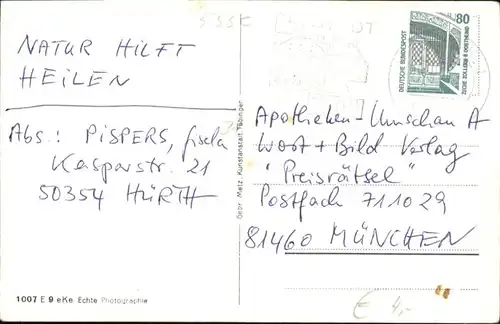 NATUR HILFT
HEILEN
Abs.: PISPERS, Gisela
Kasparstr. 21
50354 HÜRTH
1007 E 9 eKe Echte Photographie
Gebr. Metz, Kunstanstalt, Tübingen
80
DEUTSCHE BUNDESPOST
ZECHE ZOLLERN II DORTMUND
Apotheken-Umschau A
Wort + Bild Verlag
"Preisrätsel"
Postfach 711029
81460 MÜNCHEN
€ 4,-